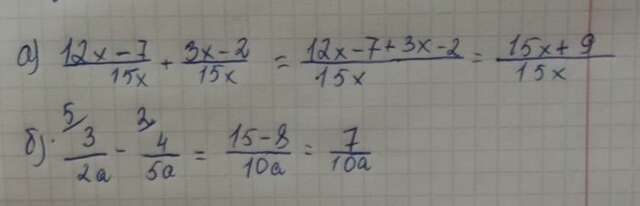 а) (12x-7)/(15x) + (3x-2)/(15x) = (12x-7+3x-2)/(15x) = (15x+9)/(15x)
б) 5/ 3/(2a) - 2/ 4/(5a) = (15-8)/(10a) = 7/(10a)